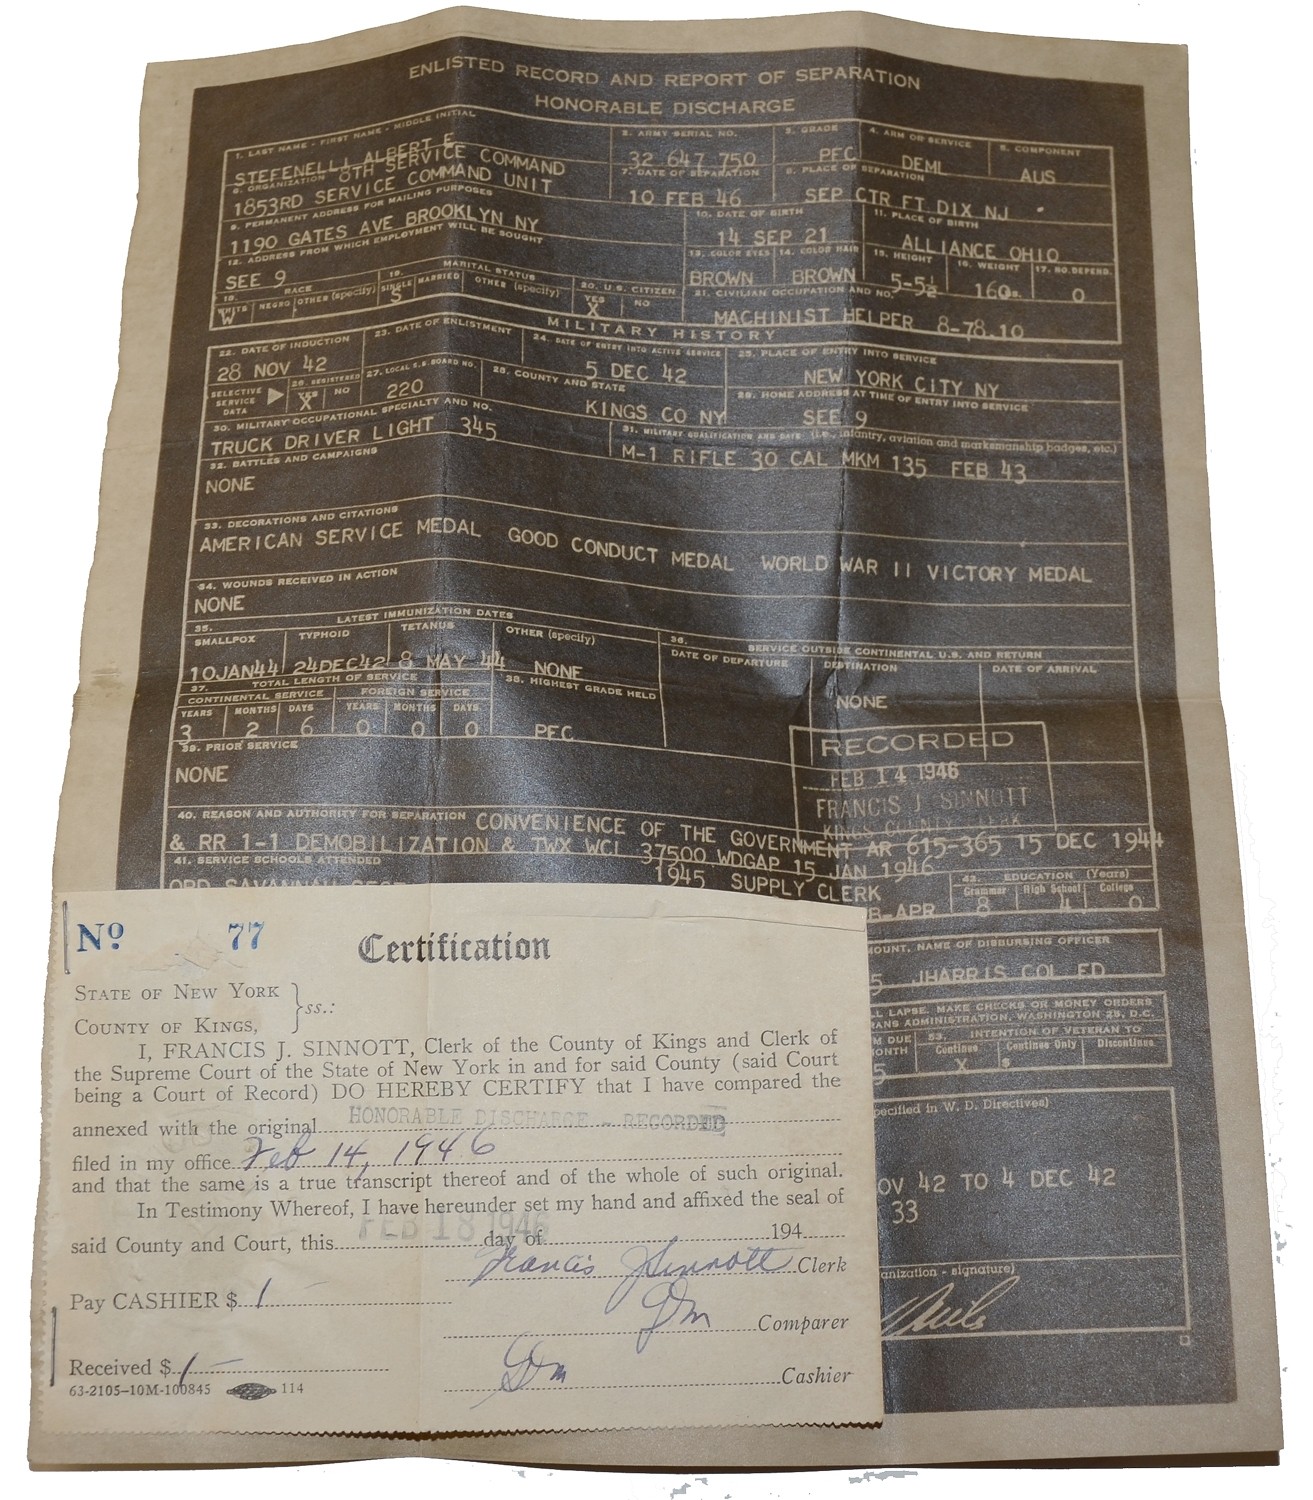 ENLISTED RECORD AND REPORT OF SEPARATION
HONORABLE DISCHARGE
1. LAST NAME - FIRST NAME - MIDDLE INITIAL
2. ARMY SERIAL NO.
3. GRADE
4. ARM OR SERVICE
5. COMPONENT
STEFENELLI ALBERT E
32 647 750
PFC
DEML
AUS
6. ORGANIZATION
8TH SERVICE COMMAND
1853RD SERVICE COMMAND UNIT
7. DATE OF SEPARATION
10 FEB 46
8. PLACE OF SEPARATION
SEP CTR FT DIX NJ
9. PERMANENT ADDRESS FOR MAILING PURPOSES
1190 GATES AVE BROOKLYN NY
10. DATE OF BIRTH
14 SEP 21
11. PLACE OF BIRTH
ALLIANCE OHIO
12. ADDRESS FROM WHICH EMPLOYMENT WILL BE SOUGHT
SEE 9
13. COLOR EYES
BROWN
14. COLOR HAIR
BROWN
15. HEIGHT
5-5½
16. WEIGHT
160 LBS.
17. NO. DEPEND.
0
18. RACE
WHITE NEGRO OTHER (specify)
W
19. MARITAL STATUS
SINGLE MARRIED OTHER (specify)
S
20. U.S. CITIZEN
YES NO
X
21. CIVILIAN OCCUPATION AND NO.
MACHINIST HELPER 8-78.10
MILITARY HISTORY
22. DATE OF INDUCTION
28 NOV 42
23. DATE OF ENLISTMENT
24. DATE OF ENTRY INTO ACTIVE SERVICE
5 DEC 42
25. PLACE OF ENTRY INTO SERVICE
NEW YORK CITY NY
SELECTIVE SERVICE DATA
26. REGISTERED
YES NO
X
27. LOCAL S.S. BOARD NO.
220
28. COUNTY AND STATE
KINGS CO NY
29. HOME ADDRESS AT TIME OF ENTRY INTO SERVICE
SEE 9
30. MILITARY OCCUPATIONAL SPECIALTY AND NO.
TRUCK DRIVER LIGHT 345
31. MILITARY QUALIFICATION AND DATE (i.e., infantry, aviation and marksmanship badges, etc.)
M-1 RIFLE 30 CAL MKM 135 FEB 43
32. BATTLES AND CAMPAIGNS
NONE
33. DECORATIONS AND CITATIONS
AMERICAN SERVICE MEDAL GOOD CONDUCT MEDAL WORLD WAR II VICTORY MEDAL
34. WOUNDS RECEIVED IN ACTION
NONE
35. LATEST IMMUNIZATION DATES
SMALLPOX TYPHOID TETANUS OTHER (specify)
10JAN44 24DEC42 8 MAY 44 NONE
36. SERVICE OUTSIDE CONTINENTAL U.S. AND RETURN
DATE OF DEPARTURE DESTINATION DATE OF ARRIVAL
NONE
37. TOTAL LENGTH OF SERVICE
CONTINENTAL SERVICE FOREIGN SERVICE
YEARS MONTHS DAYS YEARS MONTHS DAYS
3 2 6 0 0 0
38. HIGHEST GRADE HELD
PFC
39. PRIOR SERVICE
NONE
RECORDED
FEB 14 1946
FRANCIS J SINNOTT
KINGS COUNTY CLERK
40. REASON AND AUTHORITY FOR SEPARATION CONVENIENCE OF THE GOVERNMENT AR 615-365 15 DEC 1944
& RR 1-1 DEMOBILIZATION & TWX WCL 37500 WDGAP 15 JAN 1946
41. SERVICE SCHOOLS ATTENDED
ORD SAVANNAH
1945 SUPPLY CLERK
B-APR
42. EDUCATION (Years)
Grammar High School College
8 4 0
OUNT, NAME OF DISBURSING OFFICER
5 JHARRIS COL FD
LL LAPSE. MAKE CHECKS OR MONEY ORDERS
RANS ADMINISTRATION, WASHINGTON 25, D.C.
M DUE
ONTH
5
53. INTENTION OF VETERAN TO
Continue Continue Only Discontinue
X $
pecified in W. D. Directives)
OV 42 TO 4 DEC 42
33
anization - signature)
No 77
Certification
STATE OF NEW YORK
COUNTY OF KINGS, } ss.:
I, FRANCIS J. SINNOTT, Clerk of the County of Kings and Clerk of
the Supreme Court of the State of New York in and for said County (said Court
being a Court of Record) DO HEREBY CERTIFY that I have compared the
annexed with the original HONORABLE DISCHARGE - RECORDED
filed in my office Feb 14, 1946
and that the same is a true transcript thereof and of the whole of such original.
In Testimony Whereof, I have hereunder set my hand and affixed the seal of
said County and Court, this FEB 18 1946 day of 194
Francis J Sinnott Clerk
Pay CASHIER $ 1
Comparer
Received $ 1 -
Cashier
63-2105-10M-100845 114